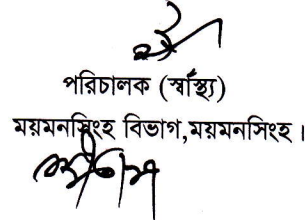 পরিচালক (স্বাস্থ্য)
ময়মনসিংহ বিভাগ,ময়মনসিংহ।